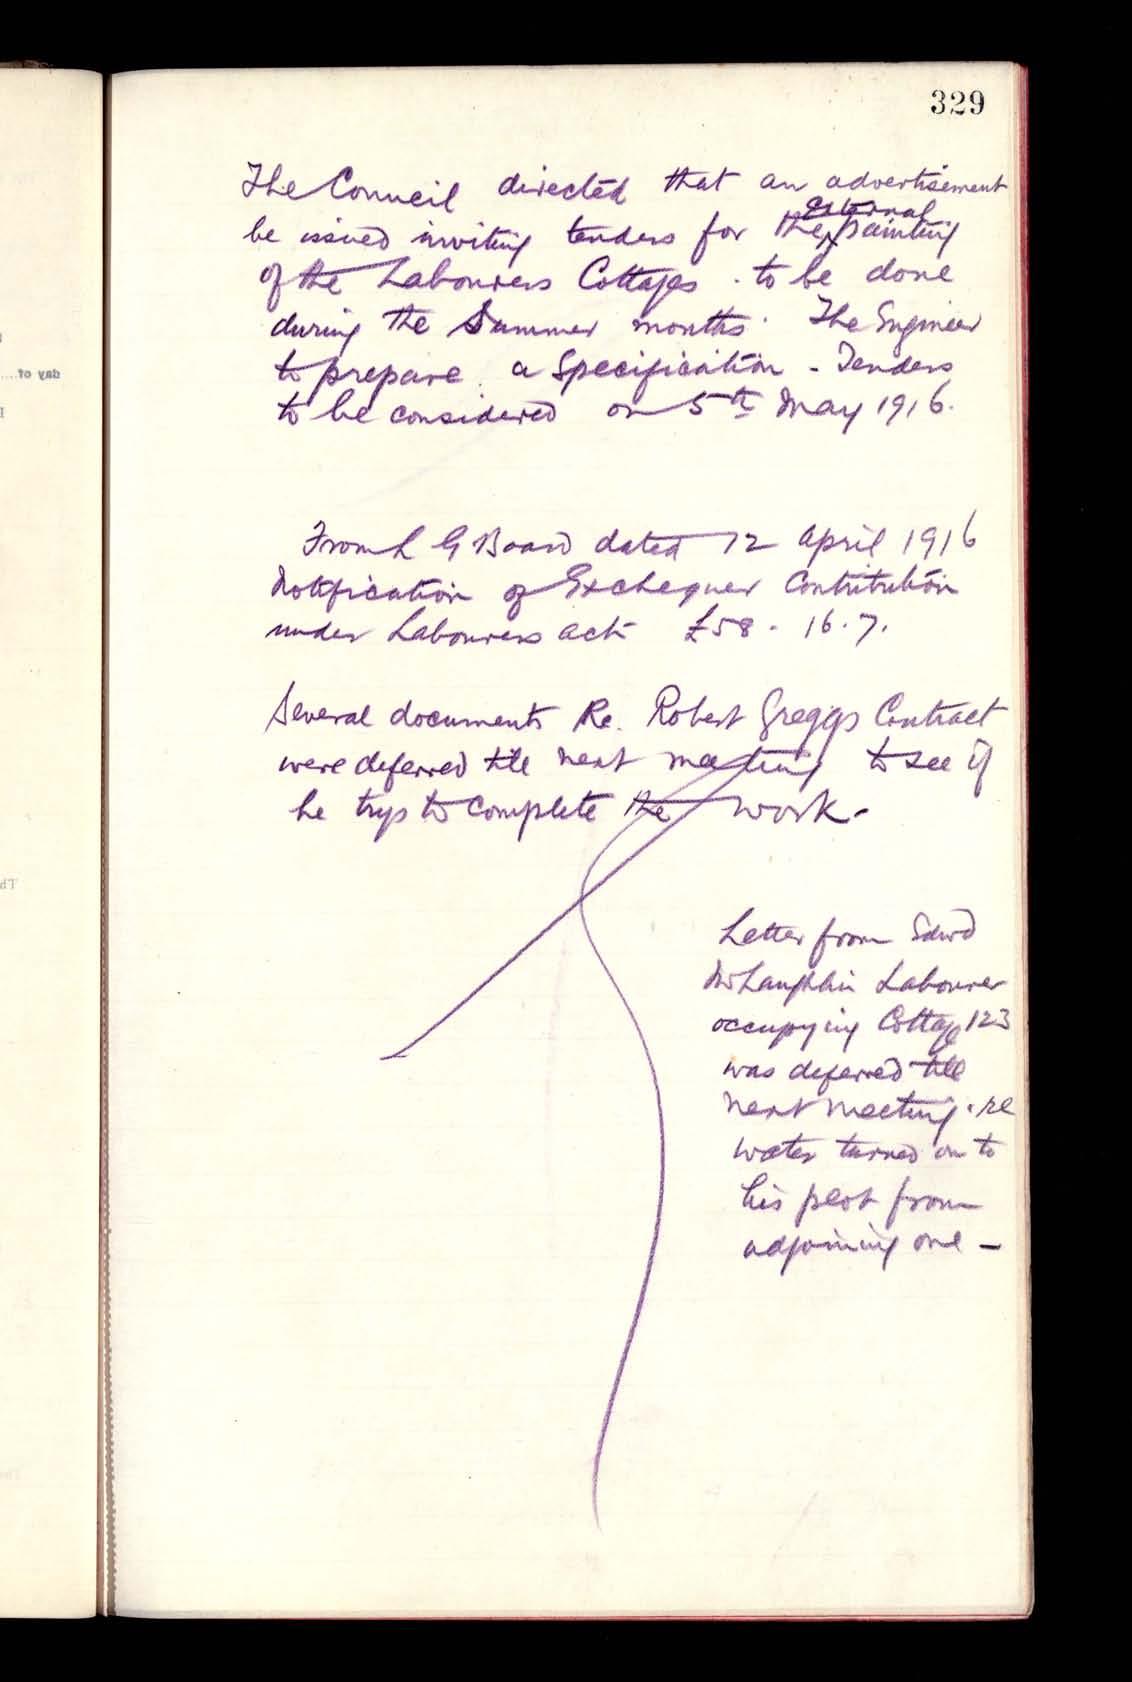 329
The Council directed that an advertisement
be issued inviting tenders for the external painting
of the Labourers Cottages . to be done
during the Summer months. The Engineer
to prepare a Specification - Tenders
to be considered on 5th May 1916.
From L G Board dated 12 April 1916
Notification of Exchequer Contribution
under Labourers act £58 . 16 . 7.
Several documents Re. Robert Greggs Contract
were deferred till next meeting to see if
he trys to complete the work -
Letter from Edwd
McLaughlin Labourer
occupying Cottage 123
was deferred till
next meeting . re
water turned on to
his plot from
adjoining one -
day of
Th